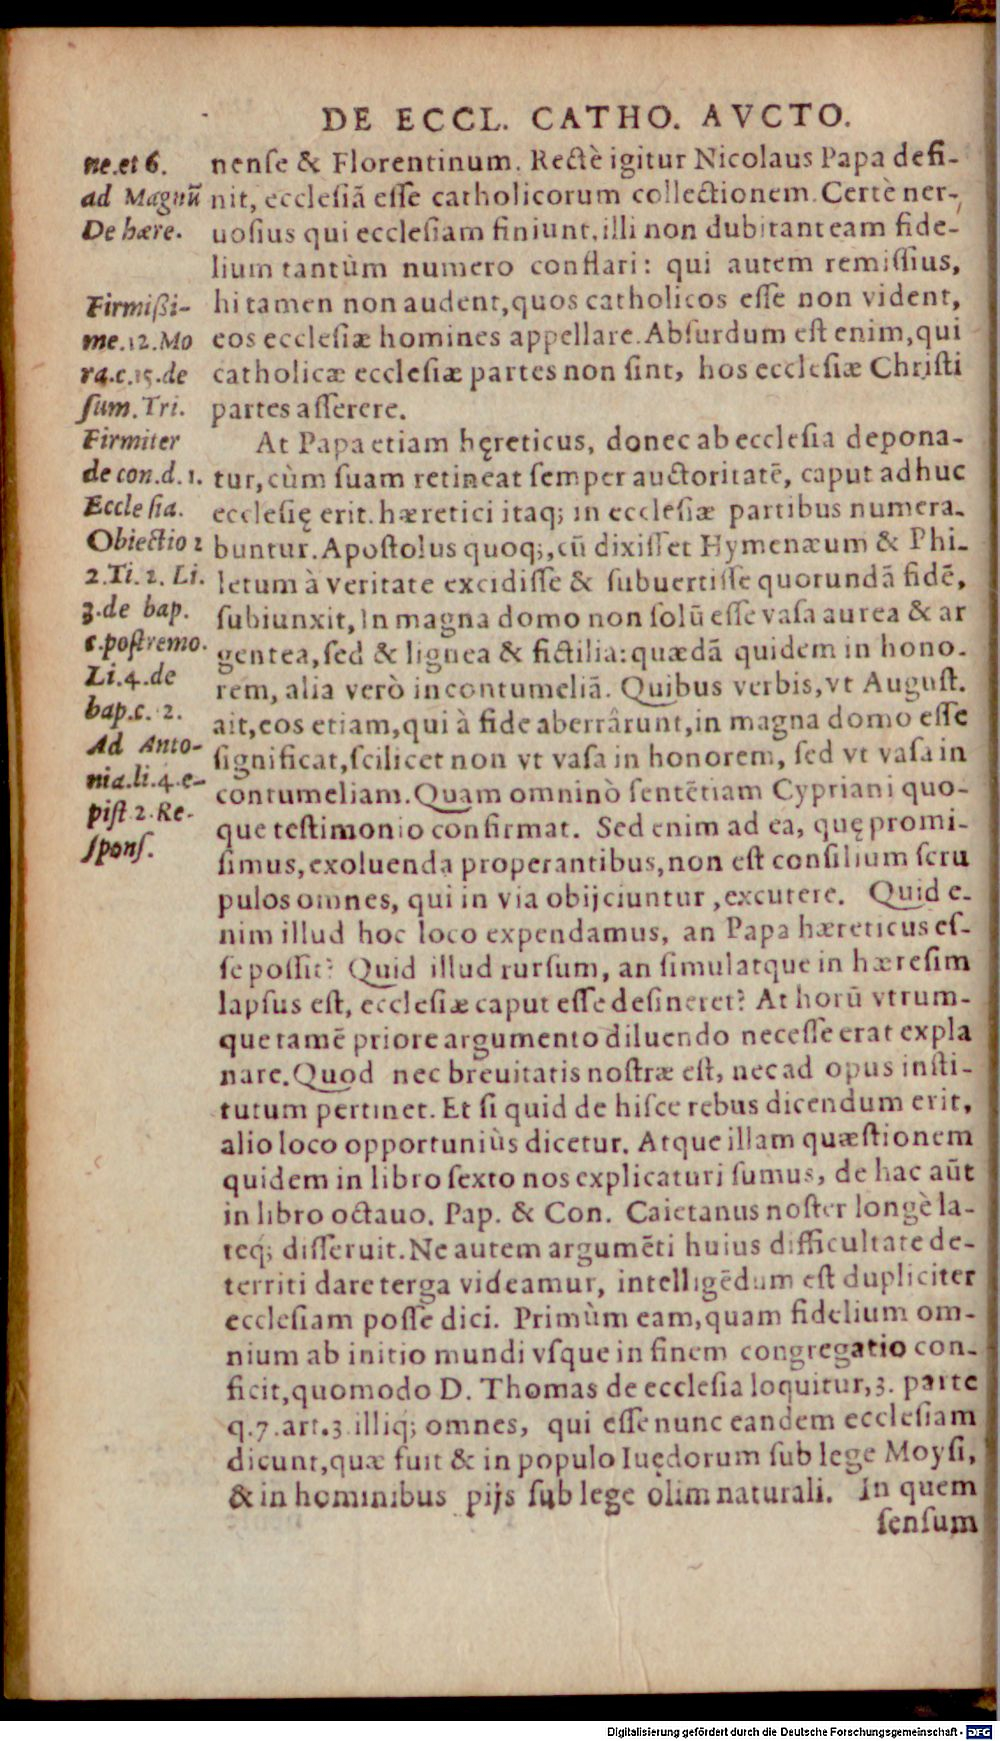 DE ECCL. CATHO. AVCTO.
ne.et 6.
ad Magnũ
De hære.
Firmißi-
me.12.Mo
ra.c.15.de
ſum.Tri.
Firmiter
de con.d.1.
Eccleſia.
Obiectio 2
2.Ti.2. Li.
3.de bap.
c.poſtremo.
Li.4.de
bap.c.2.
Ad Anto-
nia.li.4.e-
piſt.2.Re-
ſponſ.
nenſe & Florentinum. Rectè igitur Nicolaus Papa defi-
nit, eccleſiã eſſe catholicorum collectionem. Certè ner-
uoſius qui eccleſiam finiunt, illi non dubitant eam fide-
lium tantùm numero conflari: qui autem remiſſius,
hi tamen non audent, quos catholicos eſſe non vident,
eos eccleſiæ homines appellare. Abſurdum eſt enim, qui
catholicæ eccleſiæ partes non ſint, hos eccleſiæ Chriſti
partes aſſerere.
At Papa etiam hęreticus, donec ab eccleſia depona-
tur, cùm ſuam retineat ſemper auctoritatẽ, caput adhuc
eccleſię erit. hæretici itaq; in eccleſiæ partibus numera-
buntur. Apoſtolus quoq;, cũ dixiſſet Hymenæum & Phi-
letum à veritate excidiſſe & ſubuertiſſe quorundã fidẽ,
ſubiunxit, In magna domo non ſolũ eſſe vaſa aurea & ar
gentea, ſed & lignea & fictilia: quædã quidem in hono-
rem, alia verò in contumeliã. Quibus verbis, vt Auguſt.
ait, eos etiam, qui à fide aberrârunt, in magna domo eſſe
ſignificat, ſcilicet non vt vaſa in honorem, ſed vt vaſa in
contumeliam. Quam omninò ſentẽtiam Cypriani quo-
que teſtimonio confirmat. Sed enim ad ea, quę promi-
ſimus, exoluenda properantibus, non eſt conſilium ſcru
pulos omnes, qui in via obijciuntur, excutere. Quid e-
nim illud hoc loco expendamus, an Papa hæreticus eſ-
ſe poſſit? Quid illud rurſum, an ſimulatque in hæreſim
lapſus eſt, eccleſiæ caput eſſe deſineret? At horũ vtrum-
que tamẽ priore argumento diluendo neceſſe erat expla
nare. Quod nec breuitatis noſtræ eſt, nec ad opus inſti-
tutum pertinet. Et ſi quid de hiſce rebus dicendum erit,
alio loco opportuniùs dicetur. Atque illam quæſtionem
quidem in libro ſexto nos explicaturi ſumus, de hac aũt
in libro octauo. Pap. & Con. Caietanus noſter longè la-
teq; diſſeruit. Ne autem argumẽti huius difficultate de-
territi dare terga videamur, intelligẽdum eſt dupliciter
eccleſiam poſſe dici. Primùm eam, quam fidelium om-
nium ab initio mundi vſque in finem congregatio con-
ficit, quomodo D. Thomas de eccleſia loquitur, 3. parte
q.7.art.3. illiq; omnes, qui eſſe nunc eandem eccleſiam
dicunt, quæ fuit & in populo Iuędorum ſub lege Moyſi,
& in hominibus pijs ſub lege olim naturali. In quem
ſenſum
Digitalisierung gefördert durch die Deutsche Forschungsgemeinschaft - DFG